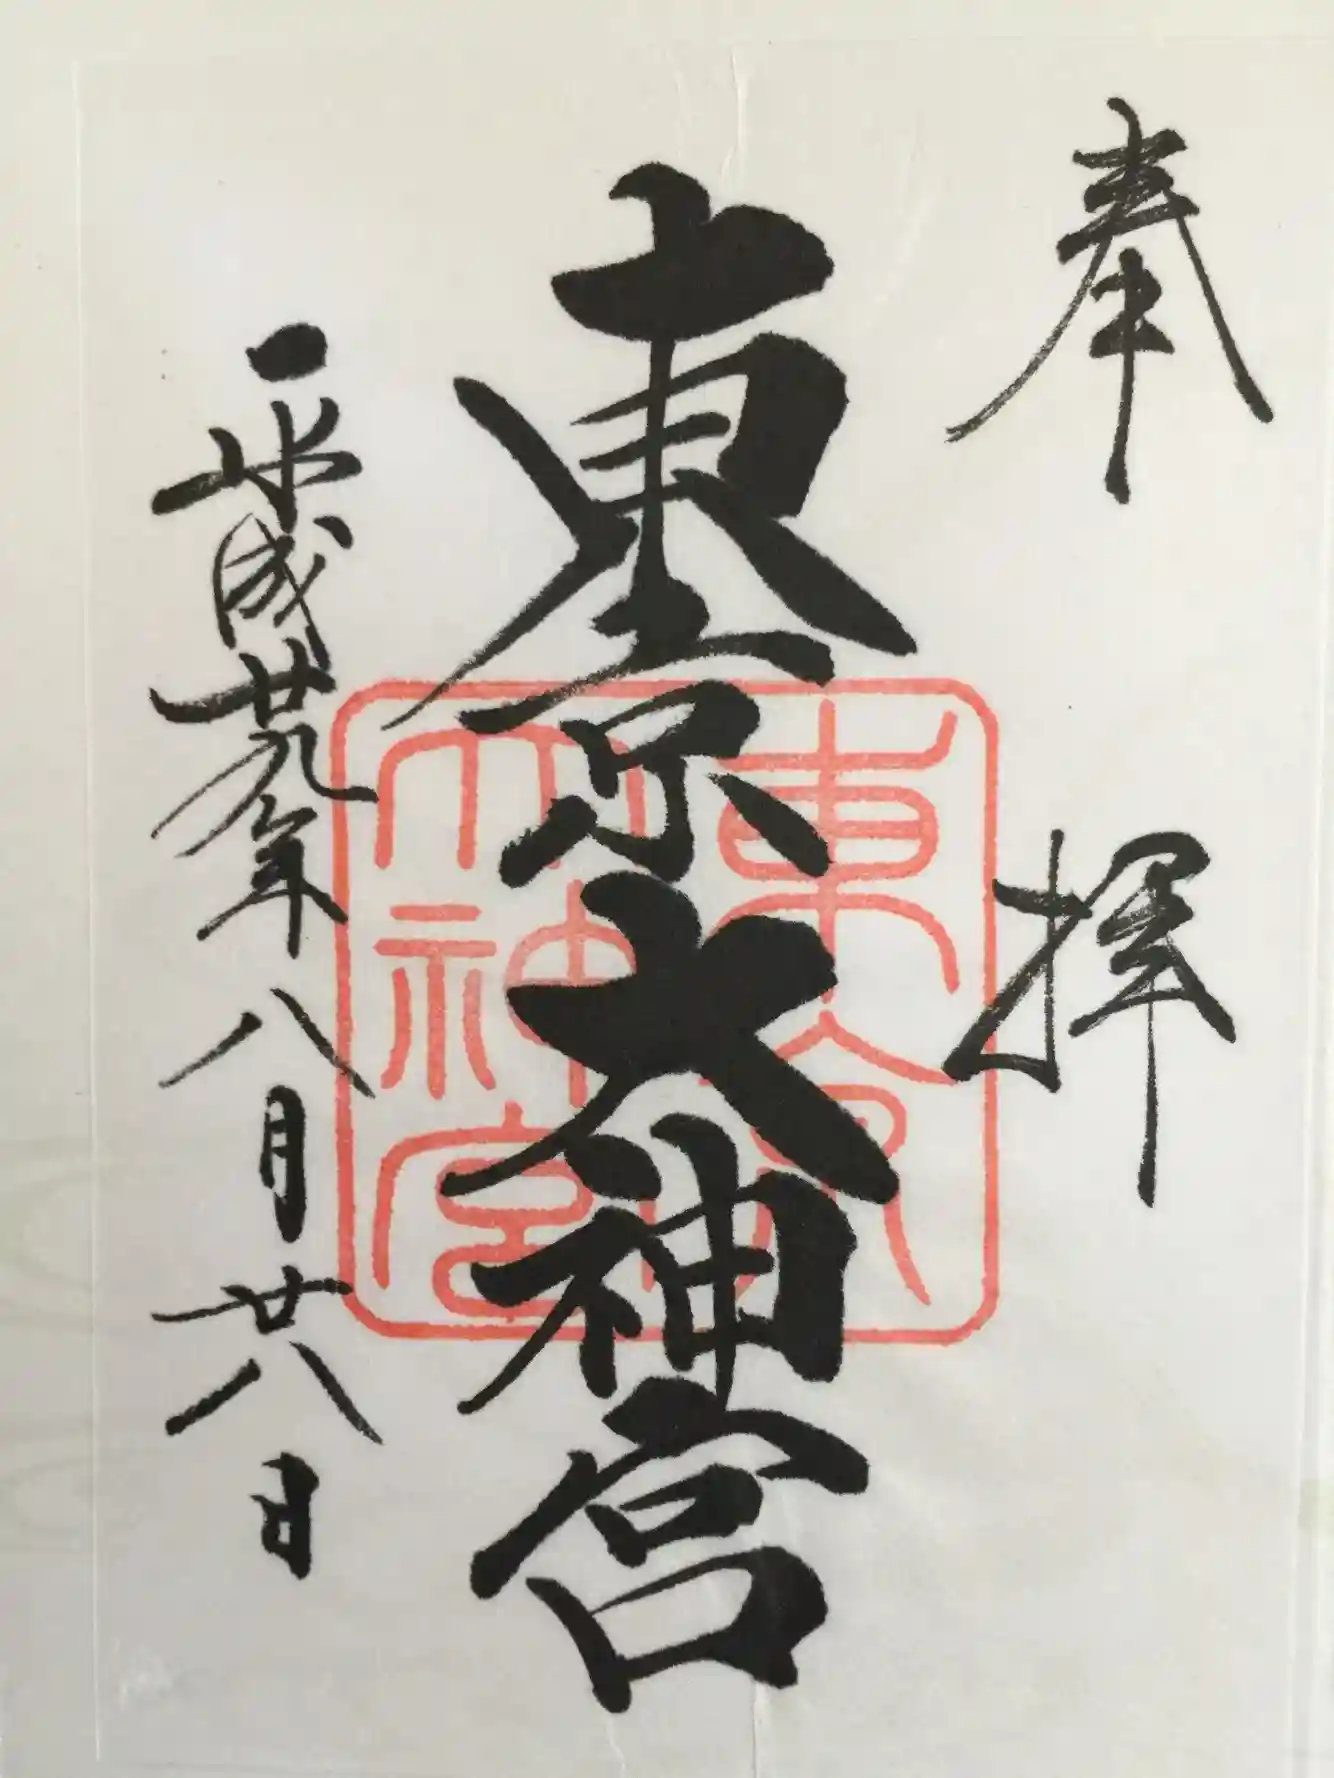 奉拝
東京大神宮
東京大神宮
平成廿九年八月廿八日